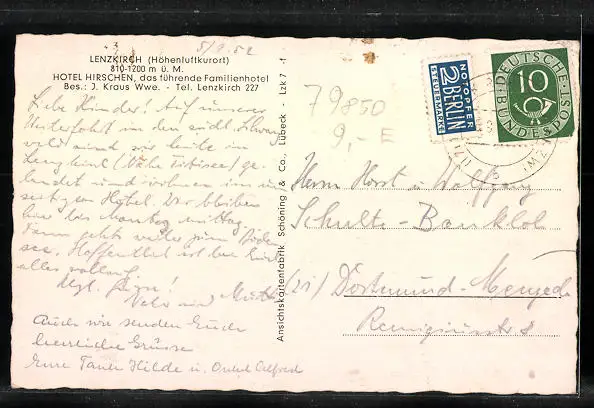 5/9.52
LENZKIRCH (Höhenluftkurort)
810-1200 m ü. M.
HOTEL HIRSCHEN, das führende Familienhotel
Bes.: J. Kraus Wwe. - Tel. Lenzkirch 227
Liebe Kinder! Auf unserer
Weiterfahrt in den südl. Schwarz-
wald sind wir heute in
Lenzkirch (Nähe Titisee) ge-
landet und wohnen im um-
seitigen Hotel. Wir bleiben
hier bis Montag mittag,
dann geht's weiter zum Boden
see. Hoffentlich ist bei Euch
alles wohlauf.
Herzl. Grüße!
Vater und Mutter
Auch wir senden Euch
herzliche Grüsse
Eure Tante Hilde u. Onkel Alfred
Ansichtskartenfabrik Schöning & Co., Lübeck - Lzk 7
79850
9,- E
NOTOPFER
2 BERLIN
STEUERMARKE
DEUTSCHE BUNDESPOST
10
Herrn Horst u. Wolfgang
Schulte-Bankloh
(21) Dortmund-Mengede
Remigiusstr. 2